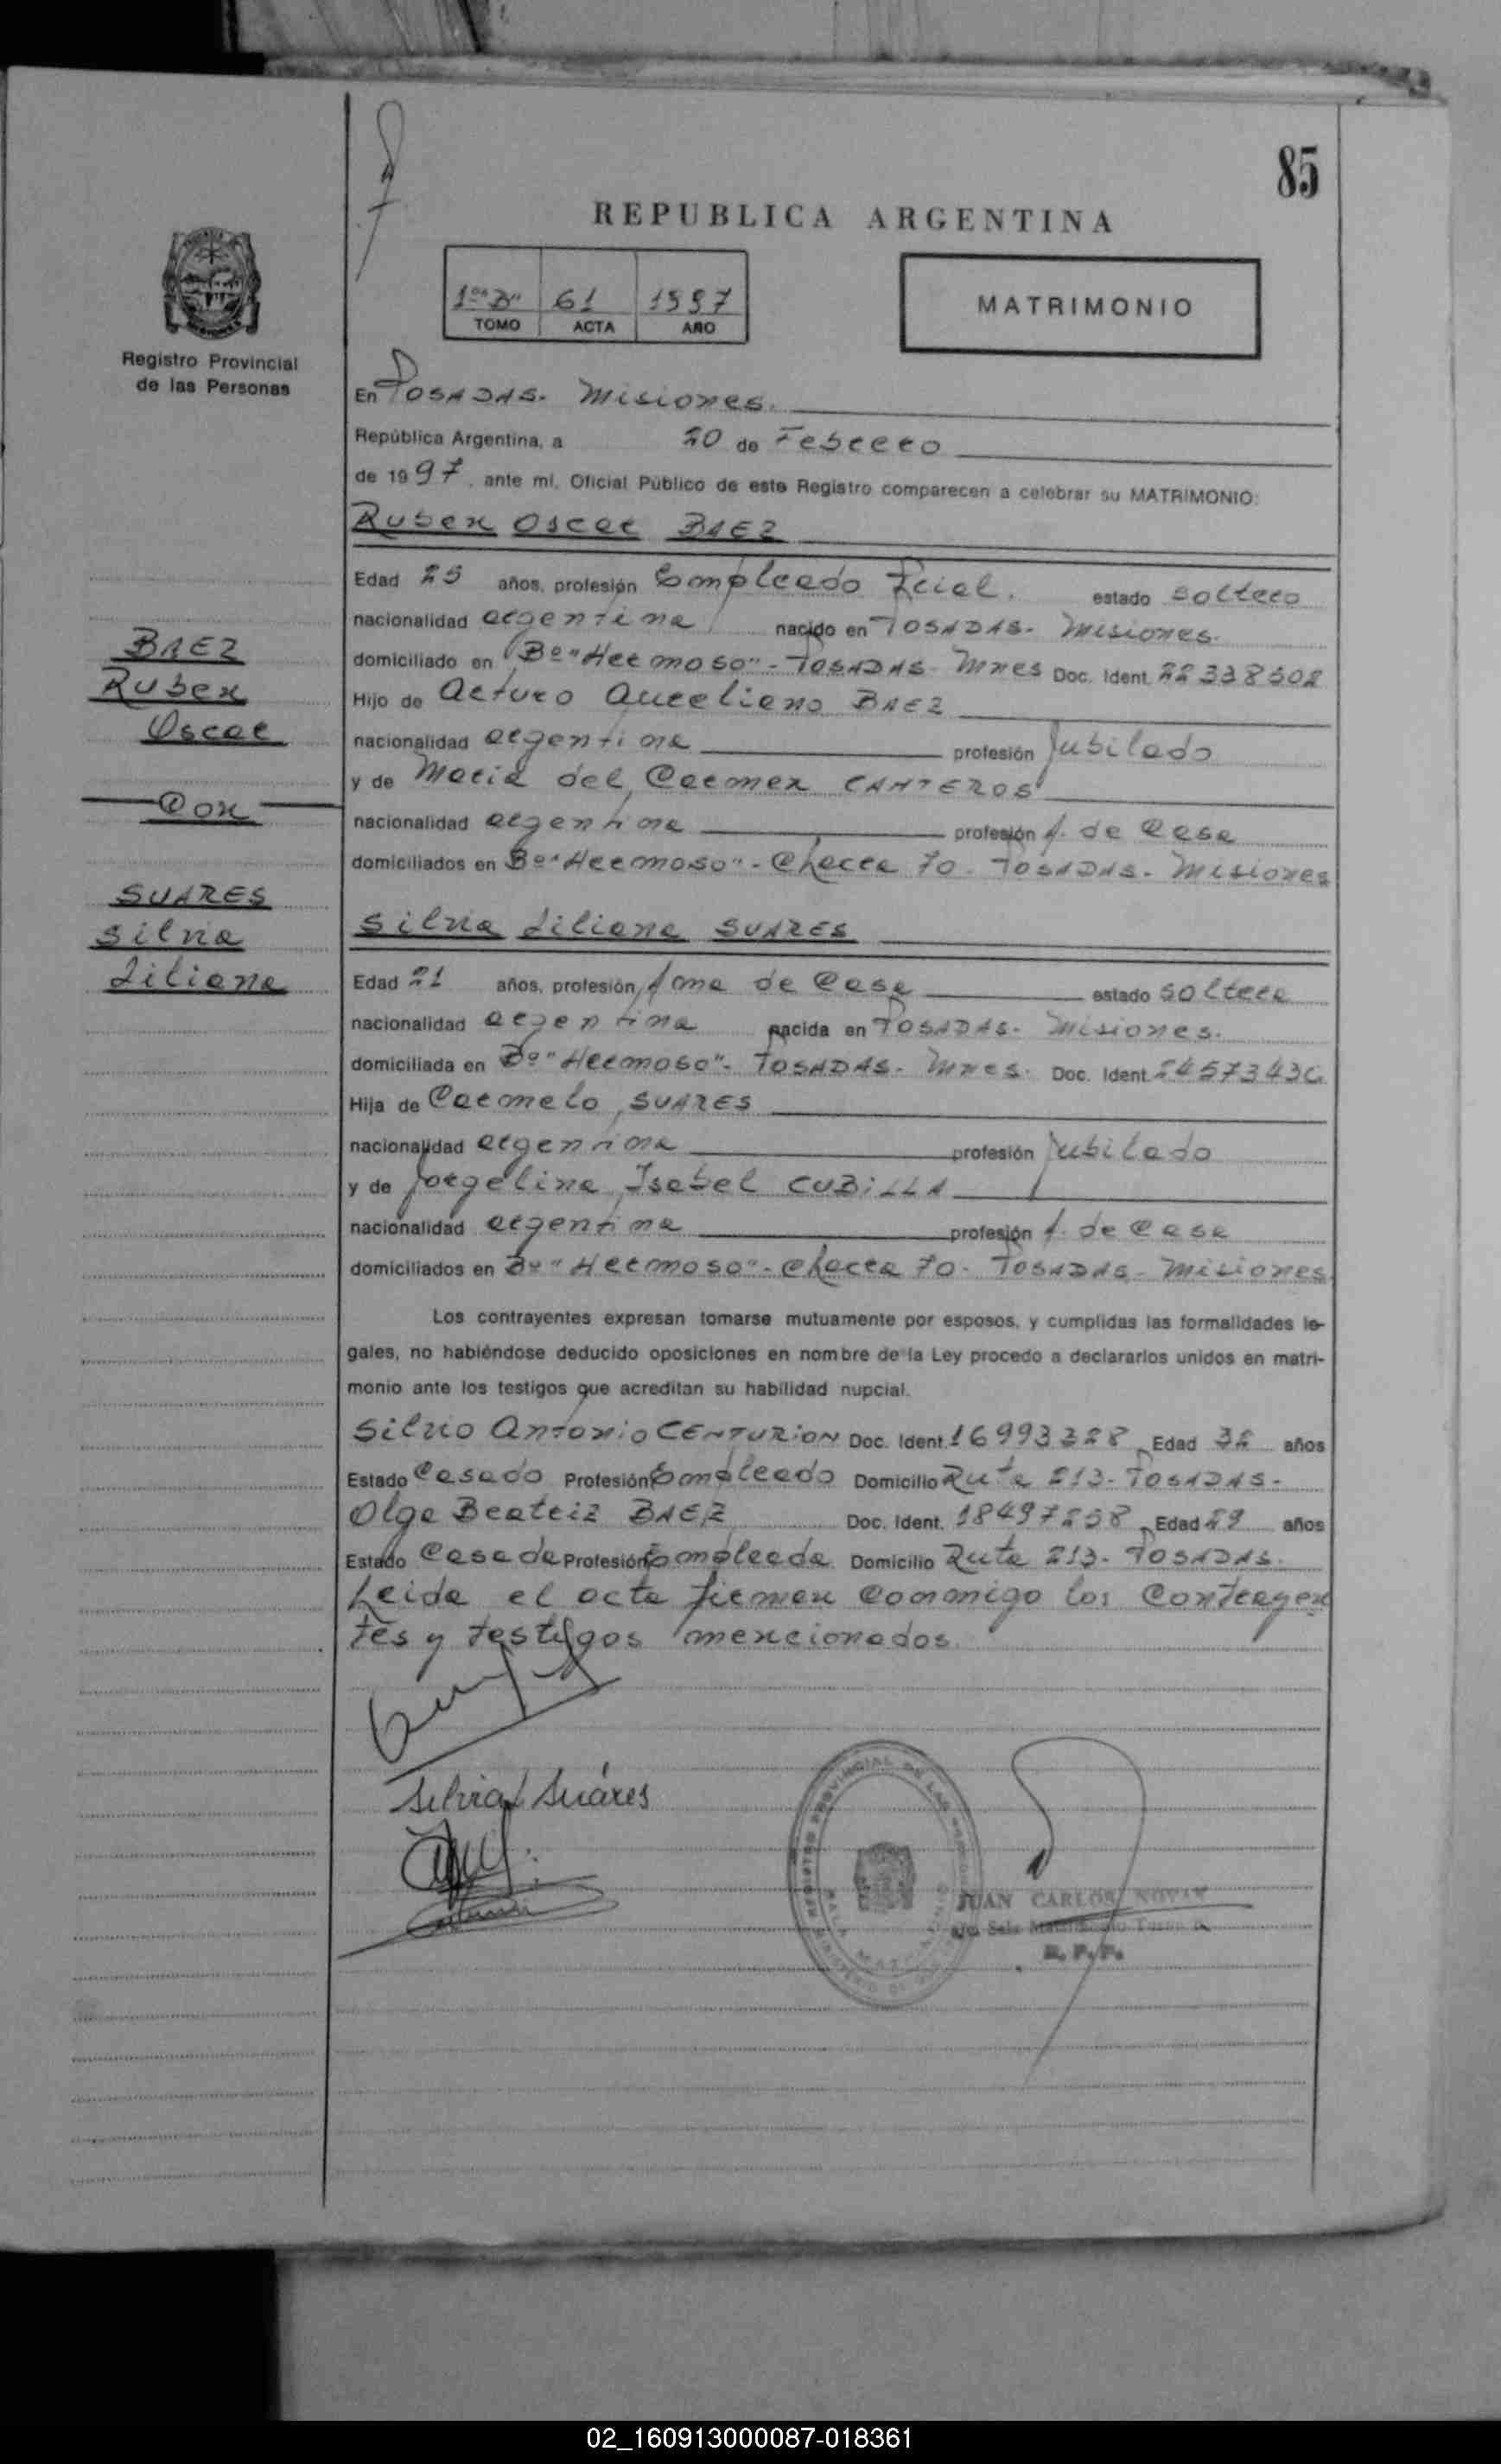 85
REPUBLICA ARGENTINA
1º "B" 61 1997
TOMO ACTA AÑO
MATRIMONIO
Registro Provincial
de las Personas
En POSADAS. Misiones.
República Argentina, a 20 de Febrero
de 1997, ante mí, Oficial Público de este Registro comparecen a celebrar su MATRIMONIO:
Ruben Oscar BAEZ
Edad 25 años, profesión Empleado estado soltero
nacionalidad argentina nacido en POSADAS. Misiones.
domiciliado en Bº "Hermoso"- POSADAS- Mnes Doc. Ident.
Hijo de Arturo Aureliano BAEZ
nacionalidad argentina profesión Jubilado
y de Maria del Carmen CANTEROS
nacionalidad argentina profesión A. de Casa
domiciliados en Bº "Hermoso"- Chacra 70- POSADAS- Misiones
BAEZ
Ruben
Oscar
Con
SUARES
Silvia
Liliana
Silvia Liliana SUARES
Edad 21 años, profesión Ama de Casa estado soltera
nacionalidad argentina nacida en POSADAS- Misiones.
domiciliada en Bº "Hermoso"- POSADAS- Mnes. Doc. Ident.
Hija de Carmelo SUARES
nacionalidad argentina profesión Jubilado
y de Jorgelina Isabel CUBILLA
nacionalidad argentina profesión A. de Casa
domiciliados en Bº "Hermoso"- Chacra 70- POSADAS- Misiones
Los contrayentes expresan tomarse mutuamente por esposos, y cumplidas las formalidades le-
gales, no habiéndose deducido oposiciones en nombre de la Ley procedo a declararlos unidos en matri-
monio ante los testigos que acreditan su habilidad nupcial.
Silvio Antonio CENTURION Doc. Ident. 16993328 Edad 32 años
Estado Casado Profesión Empleado Domicilio Ruta 213- POSADAS-
Olga Beatriz BAEZ Doc. Ident. 18497258 Edad 29 años
Estado Casada Profesión Empleada Domicilio Ruta 213- POSADAS.
Leida el acta firman conmigo los Contrayen
tes y testigos mencionados.
Silvia L Suáres
REGISTRO PROVINCIAL DE LAS
JUAN CARLOS
02_160913000087-018361